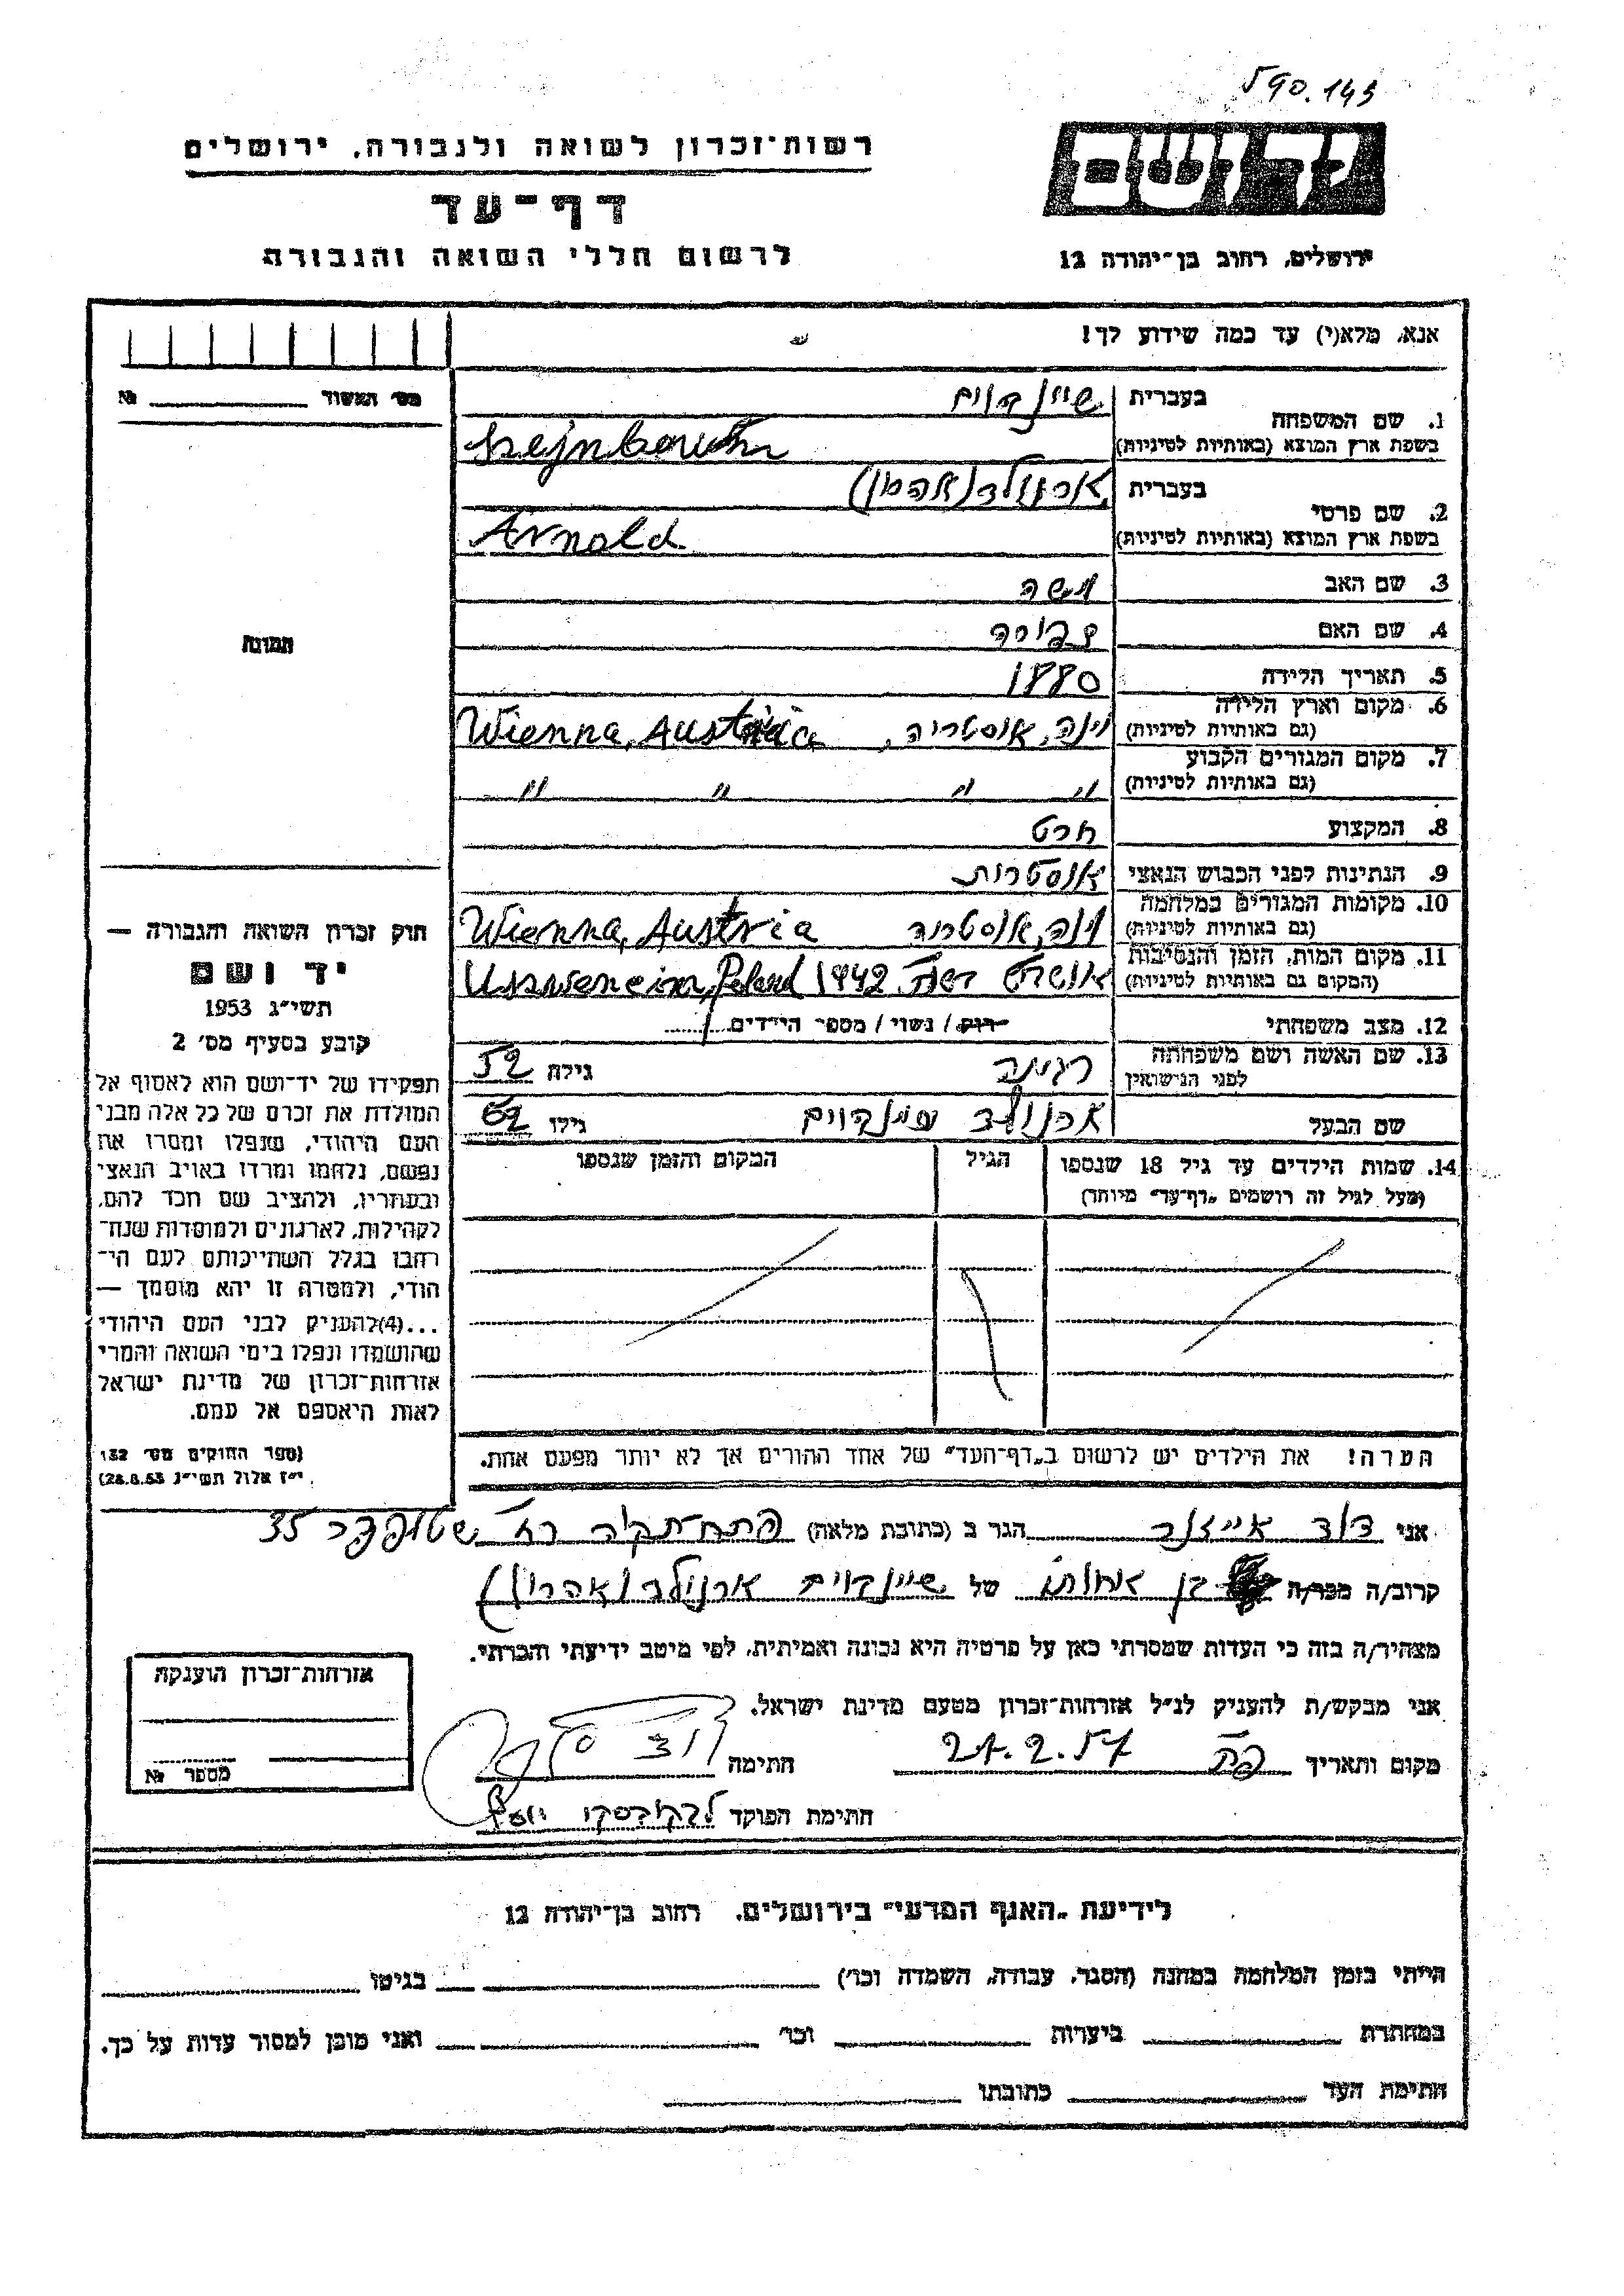 590.145
יד ושם
רשות־זכרון לשואה ולגבורה, ירושלים
דף־עד
לרשום חללי השואה והגבורה
ירושלים, רחוב בן־יהודה 12
אנא, מלא(י) עד כמה שידוע לך!
מס׳ תאשור №
1. שם המשפחה בעברית שיינבוים
בשפת ארץ המוצא (באותיות לטיניות)
2. שם פרטי בעברית ארנולד (אהרן)
בשפת ארץ המוצא (באותיות לטיניות) Arnold
3. שם האב משה
4. שם האם דבורה
5. תאריך הלידה 1880
6. מקום וארץ הלידה (גם באותיות לטיניות) וינה, אוסטריה, Wienna, Austria
7. מקום המגורים הקבוע (גם באותיות לטיניות) " " " "
8. המקצוע חרט
9. הנתינות לפני הכבוש הנאצי אוסטרית
10. מקומות המגורים במלחמה (גם באותיות לטיניות) וינה, אוסטריה Wienna, Austria
11. מקום המות, הזמן והנסיבות (המקום גם באותיות לטיניות) 1942 Poland
12. מצב משפחתי רוק / נשוי / מספר הילדים
13. שם האשה ושם משפחתה לפני הנישואין רגינה גילה 52
שם הבעל ארנולד שיינבוים גילו 62
14. שמות הילדים עד גיל 18 שנספו
(מעל לגיל זה רושמים „דף־עד" מיוחד)
הגיל
המקום והזמן שנספו
הערה! את הילדים יש לרשום ב„דף־העד" של אחד ההורים אך לא יותר מפעם אחת.
תמונה
חוק זכרון השואה והגבורה —
יד ושם
תשי״ג 1953
קובע בסעיף מס׳ 2
תפקידו של יד־ושם הוא לאסוף אל
המולדת את זכרם של כל אלה מבני
העם היהודי, שנפלו ומסרו את
נפשם, נלחמו ומרדו באויב הנאצי
ובעוזריו, ולהציב שם וזכר להם,
לקהילות, לארגונים ולמוסדות שנח־
רבו בגלל השתייכותם לעם הי־
הודי, ולמטרה זו יהא מוסמך —
...(4) להעניק לבני העם היהודי
שהושמדו ונפלו בימי השואה והמרי
אזרחות־זכרון של מדינת ישראל
לאות היאספם אל עמם.
(ספר החוקים מס׳ 132
י״ז אלול תשי״ג 28.8.53)
אני דוד אייזנר הגר ב (כתובת מלאה) פתח־תקוה רח׳ שטמפפר 35
קרוב/ה מכר/ה בן אחותו של שיינבוים ארנולד (אהרון)
מצהיר/ה בזה כי העדות שמסרתי כאן על פרטיה היא נכונה ואמיתית, לפי מיטב ידיעתי והכרתי.
אני מבקש/ת להעניק לנ״ל אזרחות־זכרון מטעם מדינת ישראל.
מקום ותאריך פ״ת 27.2.57 חתימה
חתימת הפוקד
אזרחות־זכרון הוענקה
מספר №
לידיעת „האגף המדעי" בירושלים, רחוב בן־יהודה 12
הייתי בזמן המלחמה במחנה (הסגר, עבודה, השמדה וכו׳) בגיטו
במחתרת ביערות וכו׳ ואני מוכן למסור עדות על כך.
חתימת העד כתובתו